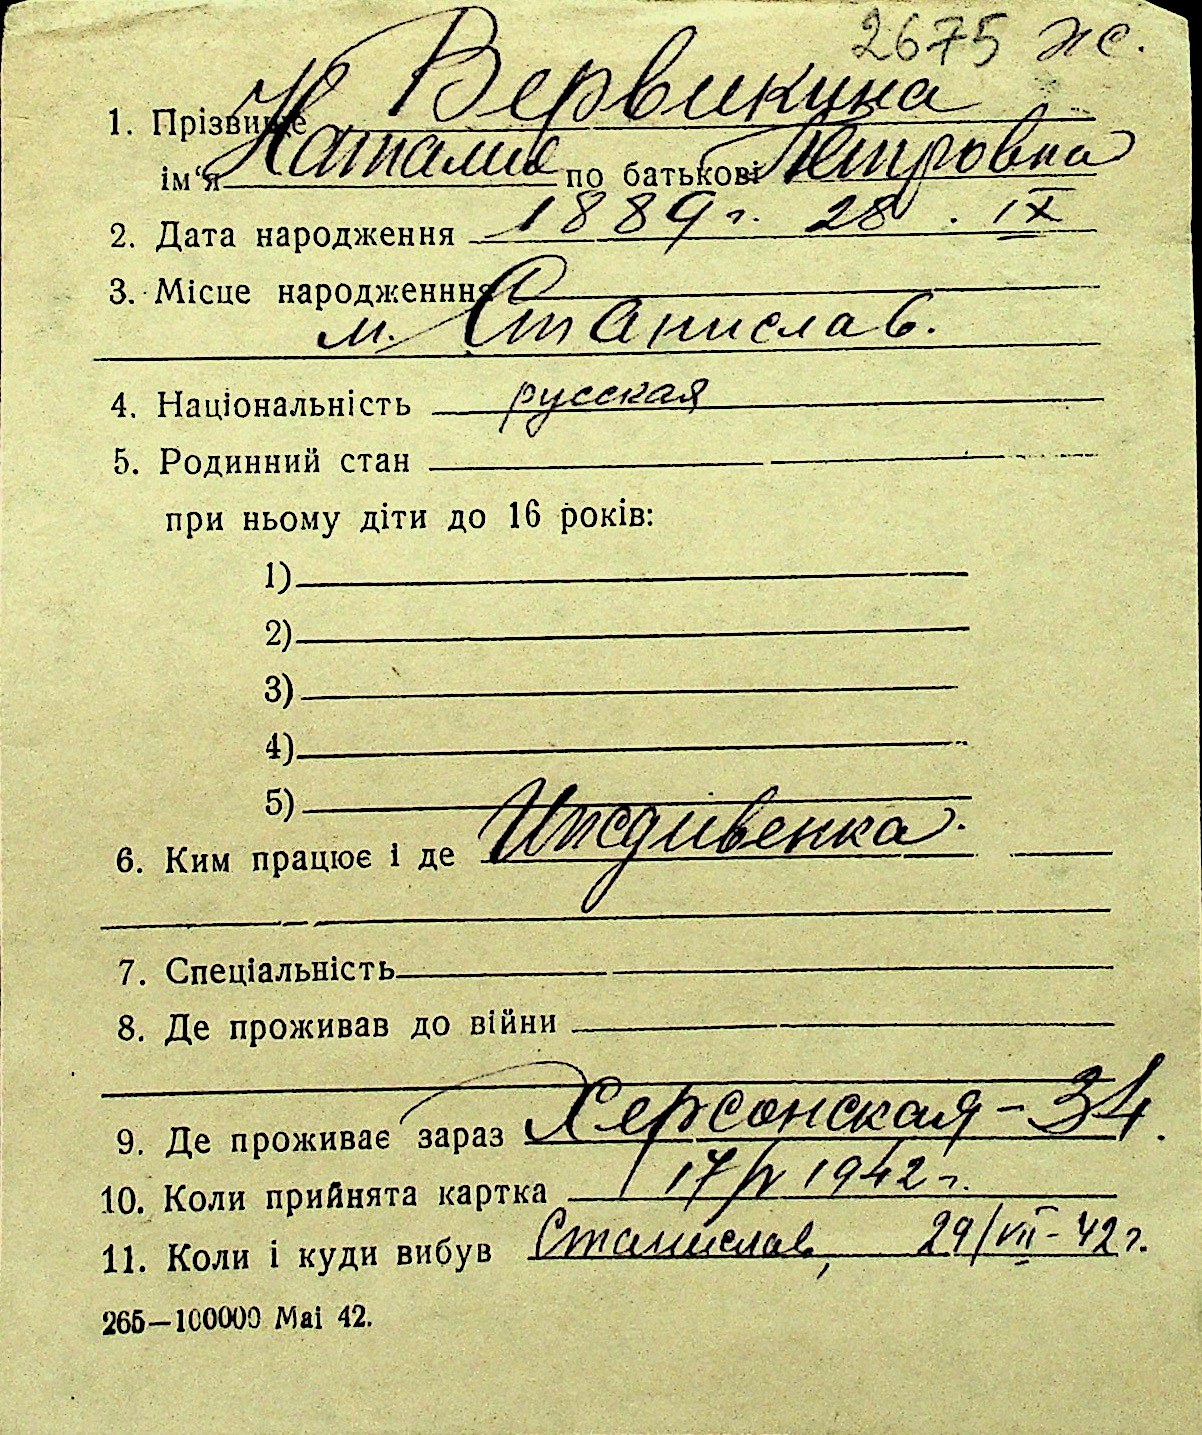 2675 ж.
1. Прізвище Вервикина
ім‘я Наталия по батькові Петровна
2. Дата народження 1889 г. 28. IX
3. Місце народженння
м. Станислав.
4. Національність русская
5. Родинний стан
при ньому діти до 16 років:
1)
2)
3)
4)
5)
6. Ким працює і де Иждивенка.
7. Спеціальність
8. Де проживав до війни
9. Де проживає зараз Херсонская-34.
10. Коли прийнята картка 17/V 1942 г.
11. Коли і куди вибув Станислав, 29/VII-42 г.
265—100000 Mai 42.